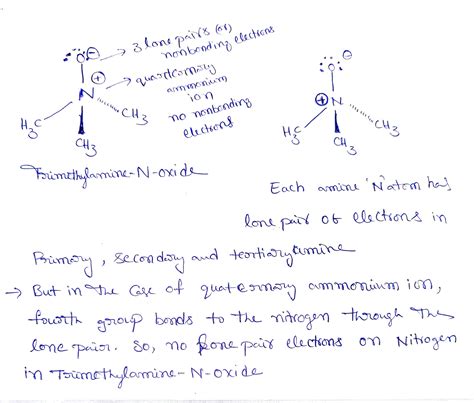 3 lone pairs (or)
nonbonding electrons
:Ö: ⊖
⊕
N
quarternary
ammonium
ion
no nonbonding
electrons
H3C
CH3
CH3
Trimethylamine-N-oxide
:Ö: ⊖
⊕N
H3C
CH3
CH3
Each amine 'N' atom has
lone pair of electrons in
Primary, secondary and teortiary amine
→ But in the case of quaternary ammonium ion,
fourth group bonds to the nitrogen through the
lone pair. So, no lone pair electrons on Nitrogen
in Trimethylamine-N-oxide